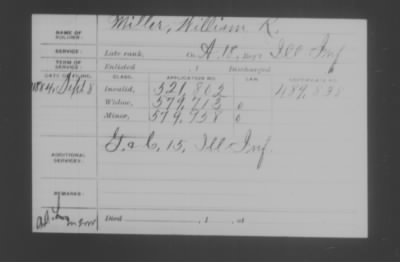 NAME OF SOLDIER: Miller, William R.
SERVICE: Late rank, Co. A, 18, Reg't Ill Inf
TERM OF SERVICE: Enlisted , 1 Discharged
DATE OF FILING. CLASS. APPLICATION NO. LAW. CERTIFICATE NO.
1884, Sept 8 Invalid, 521,803
Widow, 579,713 0
Minor, 579,758 0
ADDITIONAL SERVICES: G. & C, 15, Ill Inf.
REMARKS:
Died , 1 , at